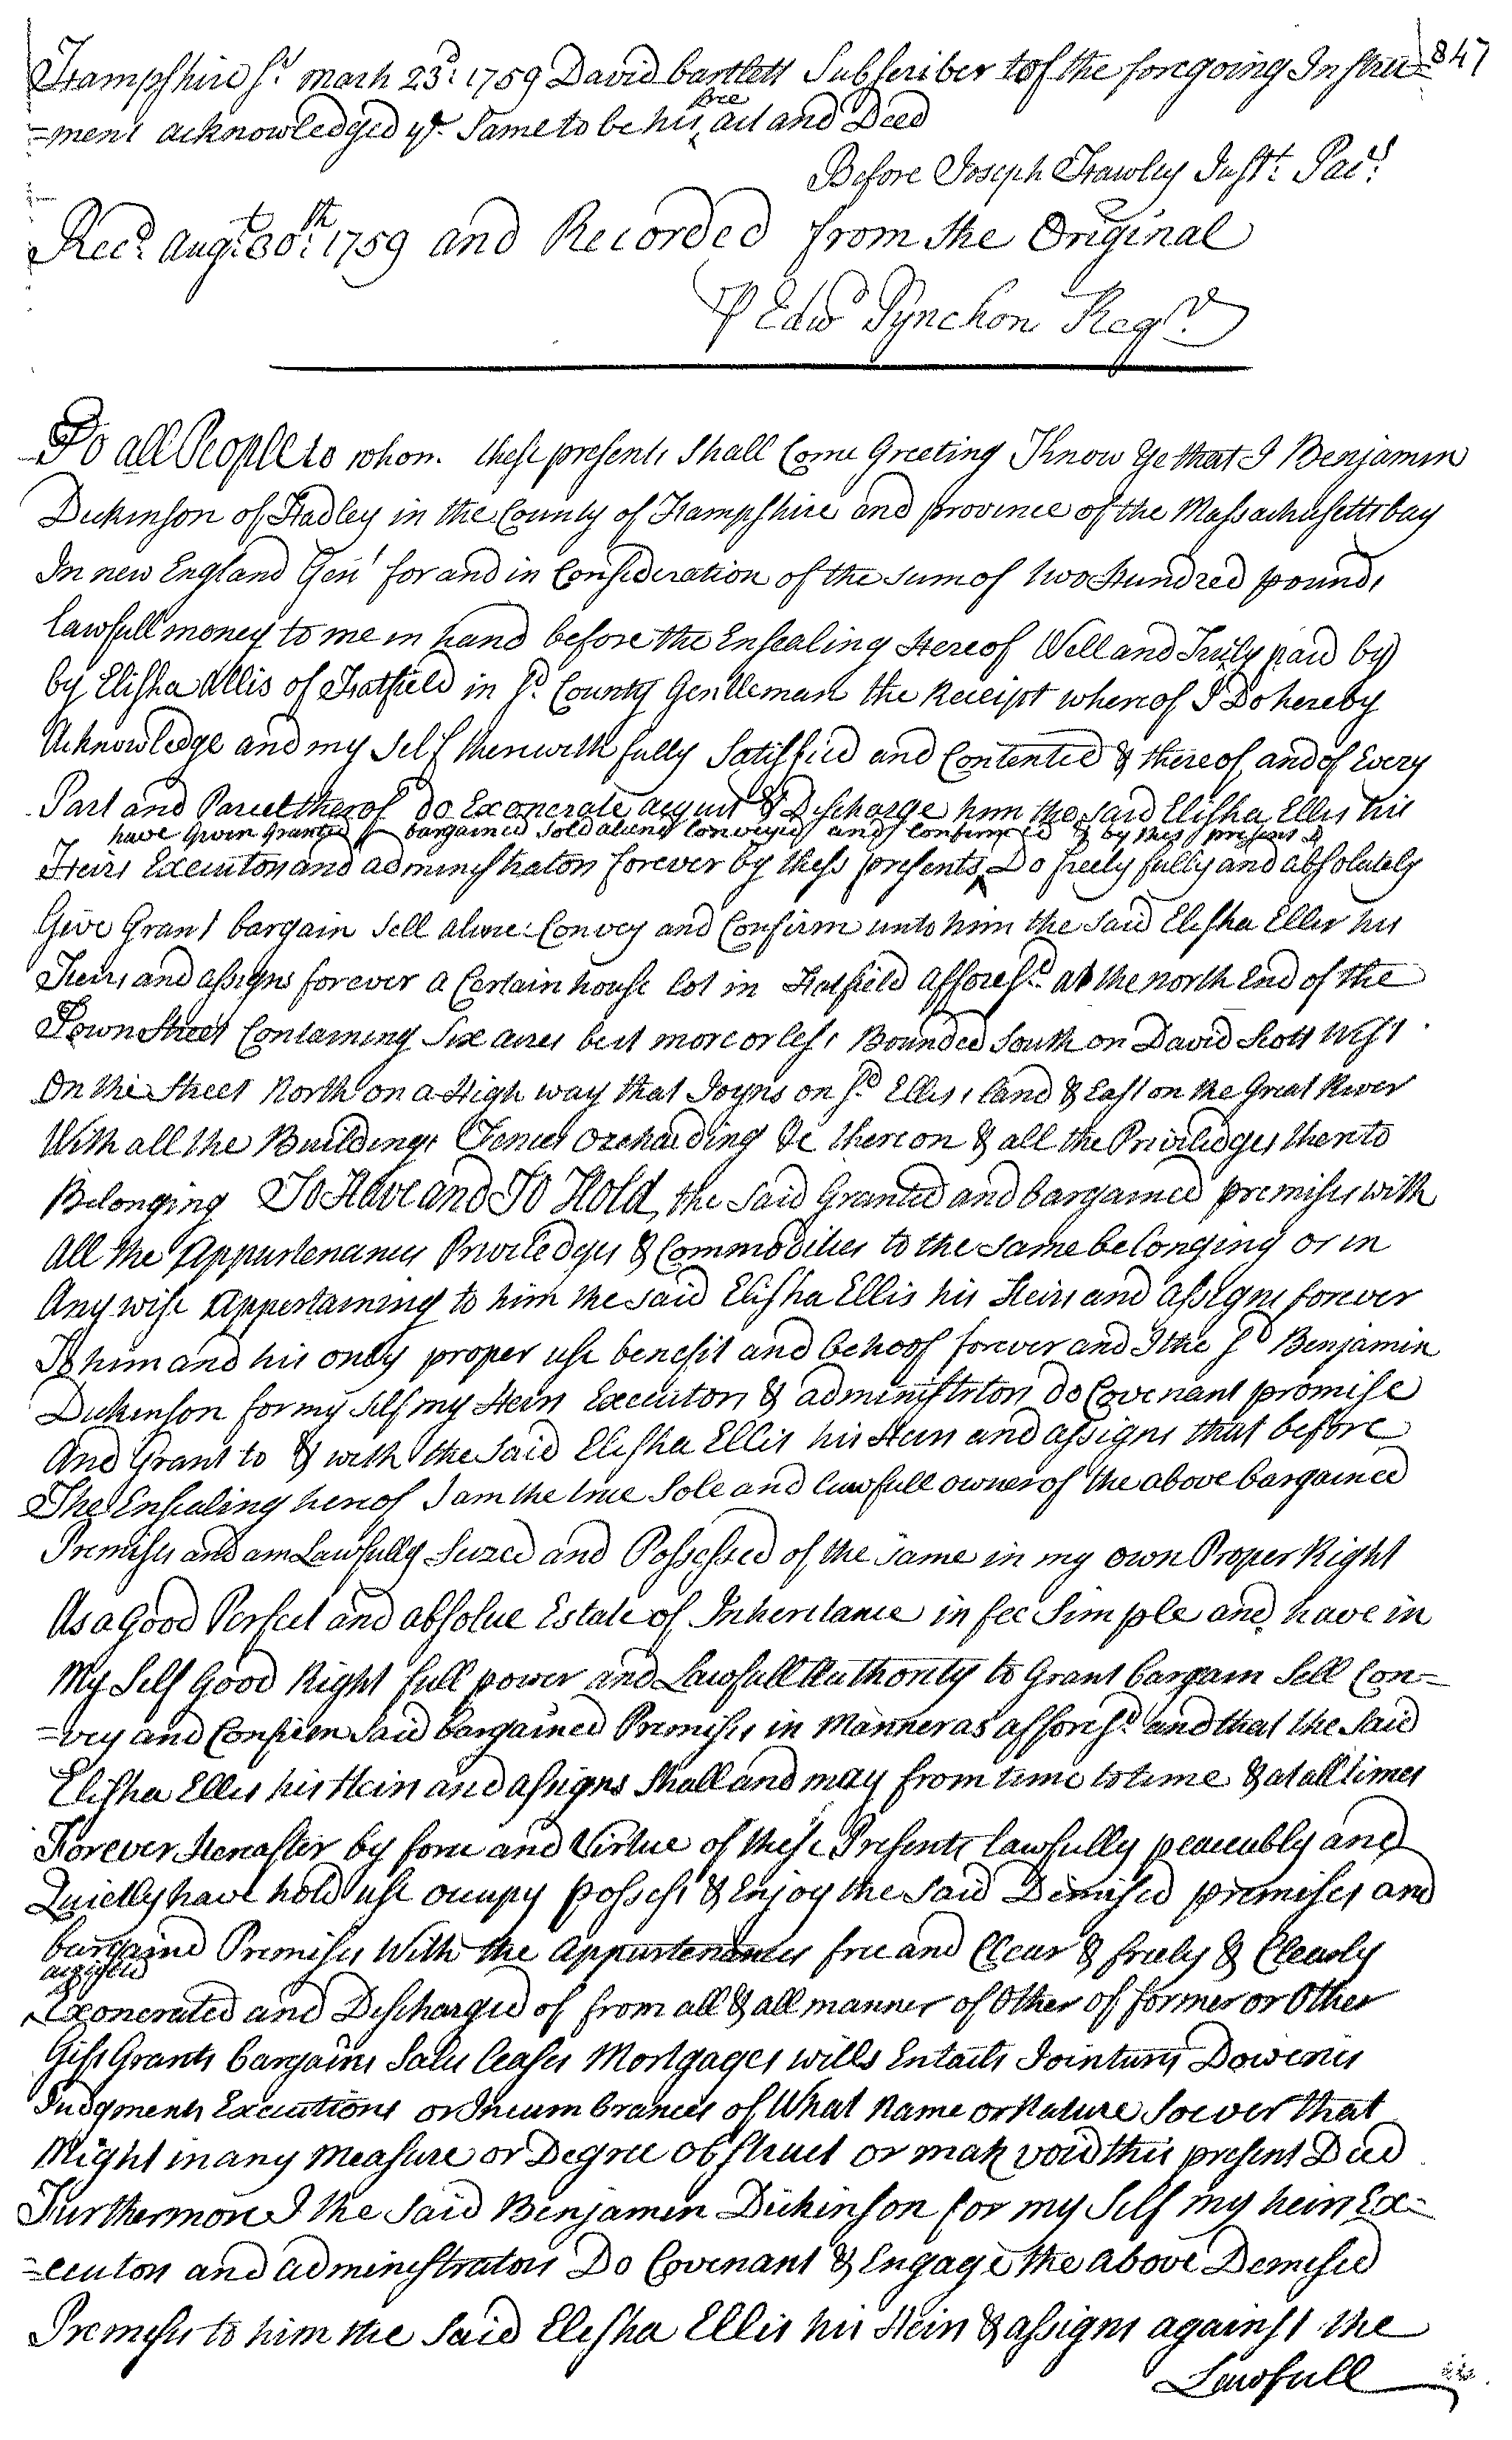 Hampshire Ss. march 23d: 1759 David bartlett Subscriber to of the foregoing Instru= 847
=ment acknowledged ye. Same to be his free act and Deed
Before Joseph Hawley Just. Pacs
Recd. Augt. 30th: 1759 and Recorded from the Original
P Edwd Pynchon Regr.
To all People to whom these presents Shall Come Greeting Know Ye that I Benjamin
Dickinson of Hadley in the County of Hampshire and province of the Massachusetts bay
In new England Gent for and in Consideration of the sum of two Hundred pounds
lawfull money to me in hand before the Ensealing Hereof Well and Truly paid by
by Elisha Allis of Hatfield in sd. County Gentleman the Receipt whereof I Do hereby
Acknowledge and my Self therewith fully Satisfied and Contented & thereof and of Every
Part and Parcel therof do Exonerate acquit & Discharge him the said Elisha Ellis his
have Given Granted bargained Sold aliend Conveyed and Confirmed & by thes presents D
Heirs Executors and administrators forever by thess presents Do freely fully and absolutely
Give Grant bargain Sell aliene Convey and Confirm unto him the Said Elisha Ellis his
Heirs and assigns forever a Certain house lot in Hatfield afforesd. at the north End of the
Town Street Containing Six acres be it more or less Bounded South on David Scott West
On the Street North on a High way that Joyns on sd. Ellis's land & East on the Great River
With all the Buildings Fences Orcharding &c thereon & all the Priviledges thereto
Belonging To Have and To Hold, the Said Granted and bargained premises with
All the Appurtenances Priviledges & Commodities to the Same belonging or in
Any wise Appertaining to him the said Elisha Ellis his Heirs and assigns forever
To him and his only proper use benefit and behoof forever and I the sd Benjamin
Dickinson for my Self my Heirs Executors & administrtors do Covenant promise
And Grant to & with the Said Elisha Ellis his Heirs and assigns that before
The Ensealing hereof I am the true Sole and lawfull owner of the above bargained
Premises and am Lawfully Seized and Possessed of the Same in my own Proper Right
As a Good Perfect and absolue Estate of Inheritance in fee Simple and have in
My Self Good Right full power and Lawfull Authority to Grant bargain Sell Con=
=vey and Confirm Said bargained Premises in Manner as afforesd. and that the Said
Elisha Ellis his Heirs and assigns Shall and may from time to time & at all times
Forever Hereafter by force and Virtue of these Presents lawfully peaceably and
Quietly have hold use occupy possess & Enjoy the Said Demised premises and
bargaind Premises With the Appurtenances free and Clear & freely & Clearly
acquitted
Exonerated and Discharged of from all & all manner of Other of former or Other
Gifs Grants bargains Sales leases Mortgages wills Entails Jointures Doweries
Judgments Executions or Incumbrances of What Name or Nature Soever that
Might in any measure or Degree obstruct or mak void this present Deed
Furthermore I the Said Benjamin Dickinson for my Self my heirs Ex=
=ecutors and administrators Do Covenant & Engage the above Demised
Premises to him the Said Elisha Ellis his Heirs & assigns against the
Lawfull